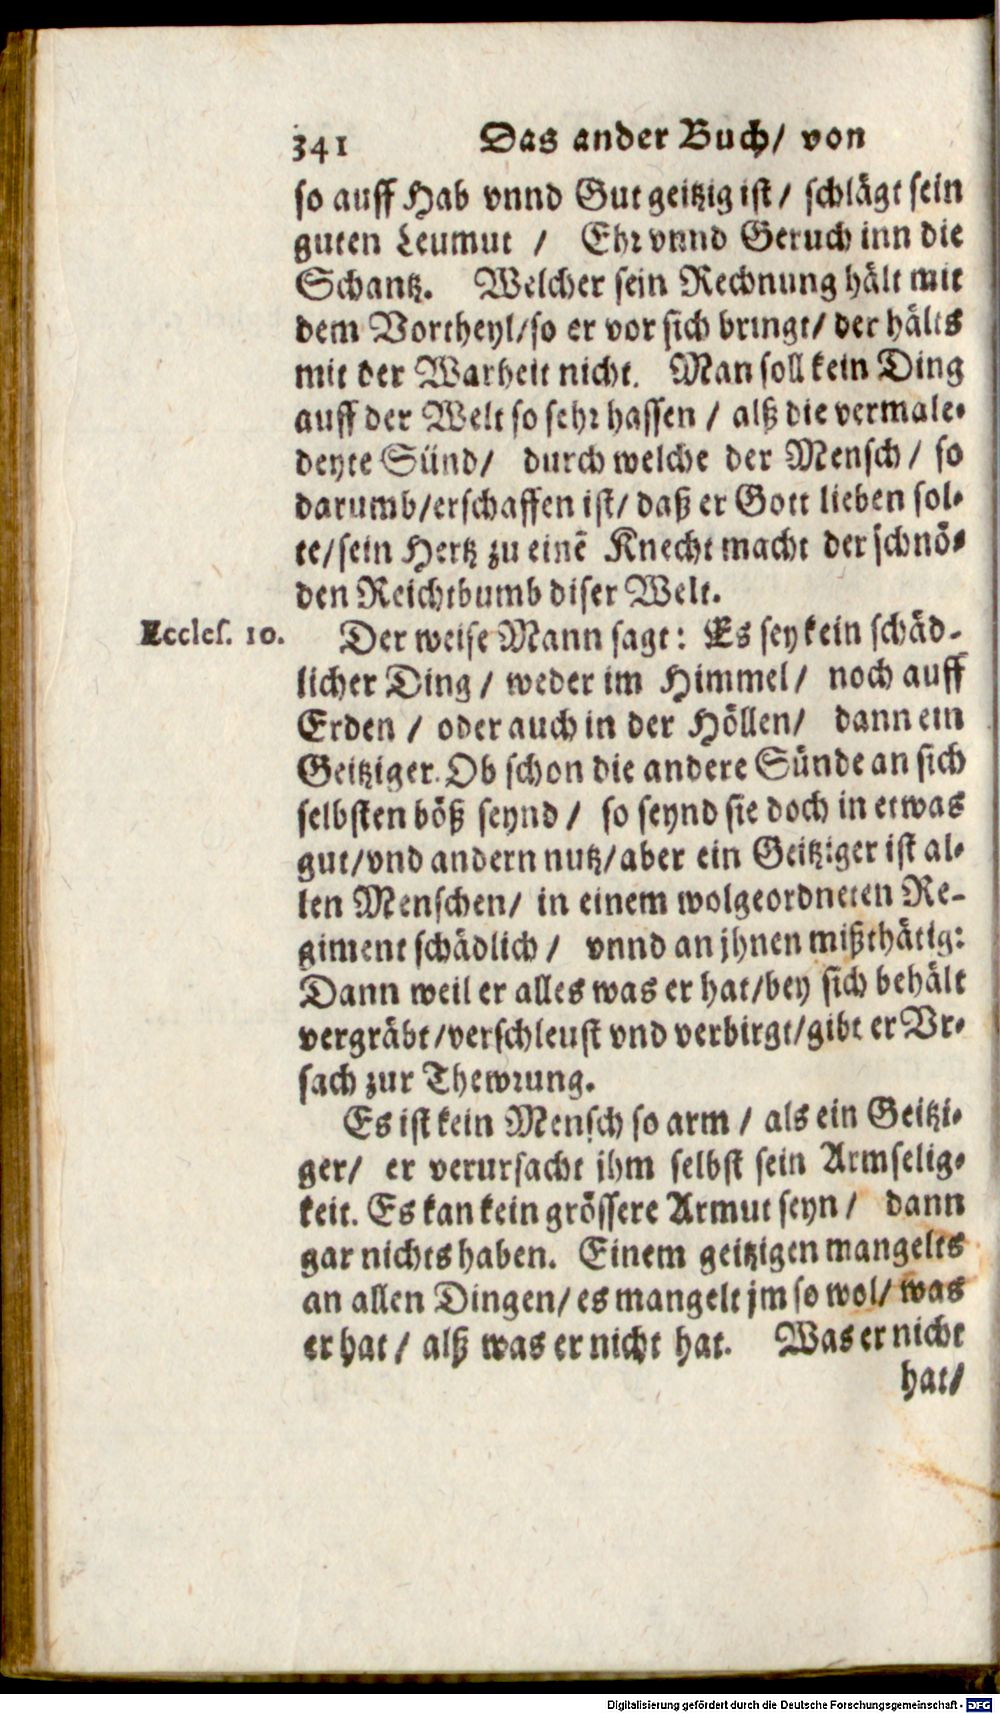 341 Das ander Buch/ von
so auff Hab vnnd Gut geitzig ist/ schlägt sein
guten Leumut / Ehr vnnd Geruch inn die
Schantz. Welcher sein Rechnung hält mit
dem Vortheyl/so er vor sich bringt/ der hälts
mit der Warheit nicht. Man soll kein Ding
auff der Welt so sehr hassen / alß die vermale-
deyte Sünd/ durch welche der Mensch/ so
darumb/erschaffen ist/ daß er Gott lieben sol-
te/sein Hertz zu einē Knecht macht der schnö-
den Reichthumb diser Welt.
Eccles. 10. Der weise Mann sagt: Es sey kein schäd-
licher Ding / weder im Himmel/ noch auff
Erden / oder auch in der Höllen/ dann ein
Geitziger. Ob schon die andere Sünde an sich
selbsten böß seynd / so seynd sie doch in etwas
gut/vnd andern nutz/aber ein Geitziger ist al-
len Menschen/ in einem wolgeordneten Re-
giment schädlich / vnnd an jhnen mißthätig:
Dann weil er alles was er hat/bey sich behält
vergräbt/verschleust vnd verbirgt/gibt er Vr-
sach zur Thewrung.
Es ist kein Mensch so arm / als ein Geitzi-
ger/ er verursacht jhm selbst sein Armselig-
keit. Es kan kein grössere Armut seyn / dann
gar nichts haben. Einem geitzigen mangelts
an allen Dingen/ es mangelt jm so wol/ was
er hat / alß was er nicht hat. Was er nicht
hat/
Digitalisierung gefördert durch die Deutsche Forschungsgemeinschaft - DFG